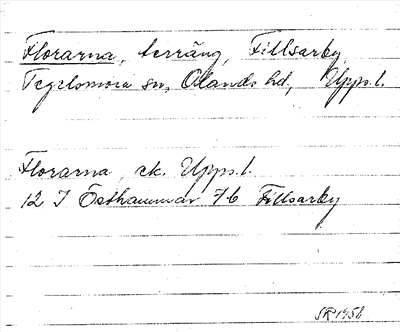 Florarna, terräng, Fillsarby,
Tegelsmora sn, Olands hd, Upps.l.
Florarna, ek. Upps.l.
12 I Östhammar 7b Fillsarby
SR 1956